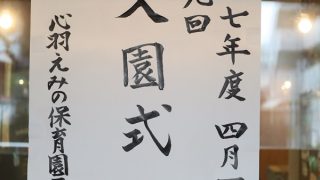 七年度 四月
回
入園式
心羽えみの保育園